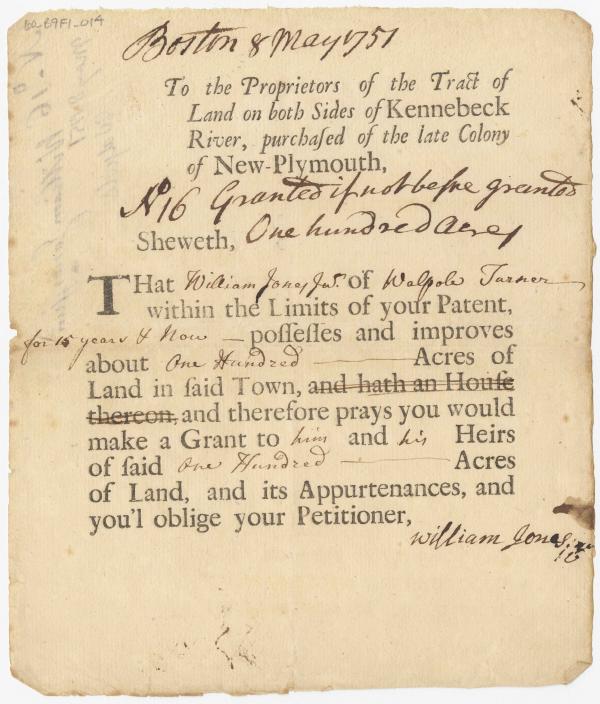 Boston 8 May 1751
To the Proprietors of the Tract of
Land on both Sides of Kennebeck
River, purchaſed of the late Colony
of New-Plymouth,
No 16 Granted if not before granted
Sheweth, One hundred acres
THat William Jones Junr. of Walpole Turner
within the Limits of your Patent,
for 15 years & Now — poſſeſſes and improves
about One Hundred — Acres of
Land in ſaid Town, and hath an Houſe
thereon, and therefore prays you would
make a Grant to him and his Heirs
of ſaid One Hundred — Acres
of Land, and its Appurtenances, and
you'l oblige your Petitioner,
William Jones